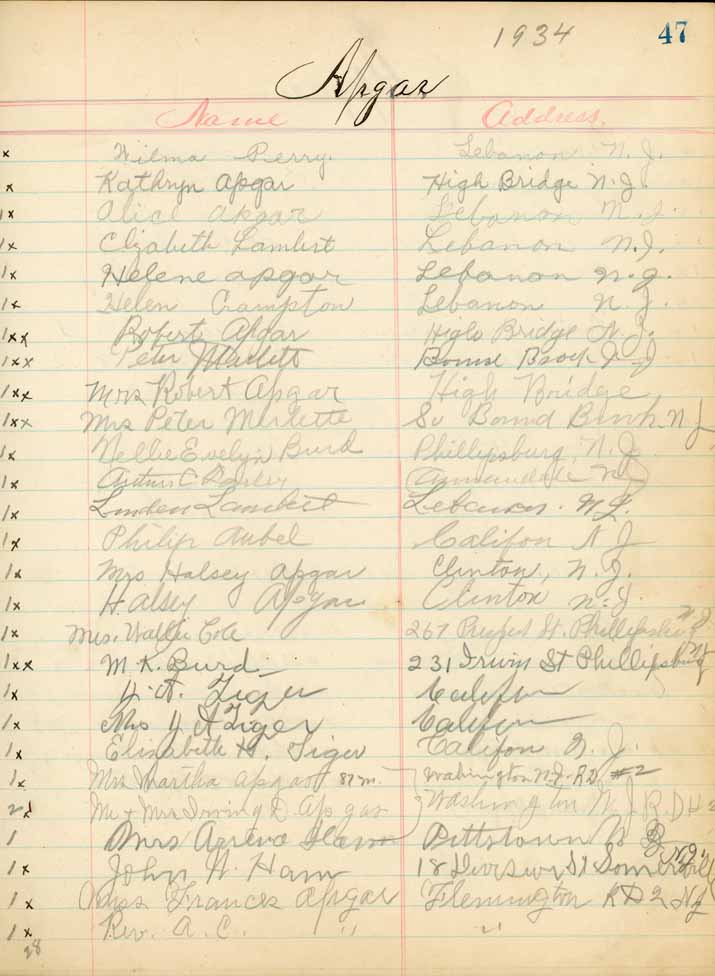 1934 47
Apgar
Name Address.
x Wilma Perry. Lebanon N. J.
x Kathryn Apgar High Bridge N. J.
1x Alice Apgar Lebanon N. J.
1x Elizabeth Lambert Lebanon N.J.
1x Helene Apgar Lebanon N. J.
1x Helen Crampton Lebanon N. J.
1xx Robert Apgar High Bridge N. J.
1xx Peter Marlette Bound Brook N. J.
1xx Mrs Robert Apgar High Bridge
1xx Mrs Peter Merlette So Bound Brook N J
1x Nellie Evelyn Burd Phillipsburg, N. J.
1x Arthur C Annandale N J
1x Linden Lambert Lebanon. N. J.
1x Philip Aubel Califon N J
1x Mrs Halsey Apgar Clinton, N. J.
1x Halsey Apgar Clinton N. J.
1x Mrs. Wallie Cole 267 St. Phillipsburg N J
1xx M. K. Burd 231 Irwin St Phillipsburg N J
1x A. Tiger Califon
1x Mrs A Tiger Califon
1x Elizabeth H. Tiger Califon N. J.
1x Mrs Martha Apgar 87 m. Washington N. J. R.D. #2
2x Mr + Mrs Irving D Apgar Washington N. J R. D # 2
1 Mrs Ham Pittstown N J
1x John W. Ham 18 Division St Somerville N. J.
1x Miss Frances Apgar Flemington R D 2 N J
1x Rev. A. C. " "
28